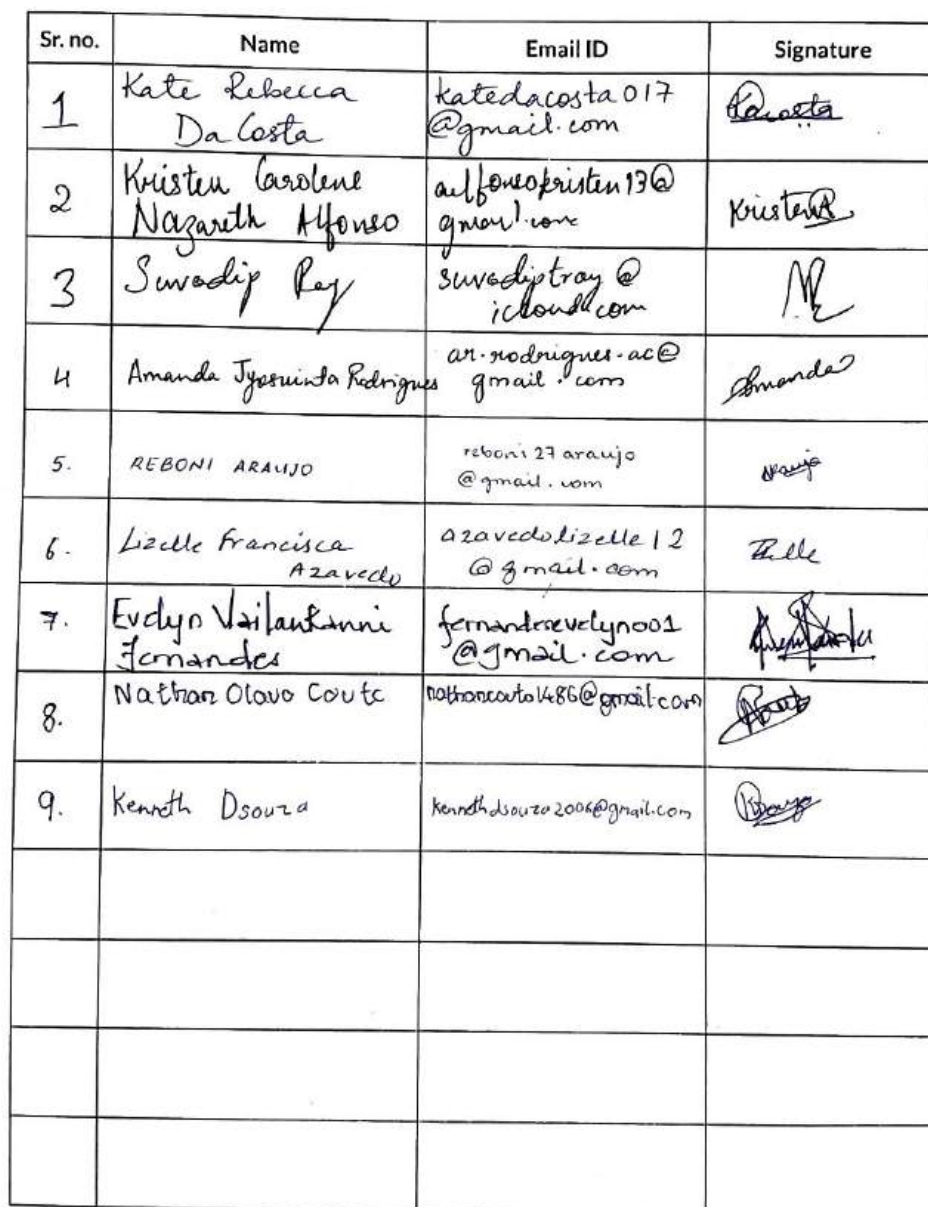 Sr. no. Name Email ID Signature
1 Kate Rebecca katedacosta017
Da Costa @gmail.com Dacosta
2 Kristen Carolene
Nazareth Alfonso gmail.com Kristen
3 Suvadip Ray suvadiptray@
icloud.com
4 Amanda Rodrigues ar.rodrigues.ac@
gmail.com Amanda
5. REBONI ARAUJO reboni27araujo
@gmail.com Araujo
6. Lizelle Francisca azavedolizelle12
Azavedo @gmail.com
7. Evelyn Vailankanni fernandesevelyn001
Fernandes @gmail.com
8. Nathan Olavo Couto nathancouto1486@gmail.com
9. Kenneth Dsouza kennethdsouza2006@gmail.com